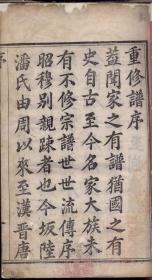 重修譜序
蓋聞家之有譜猶國之有
史自古至今名家大族未
有不修宗譜世世流傳序
昭穆別親踈者也今坂陸
潘氏由周以來至漢晉唐